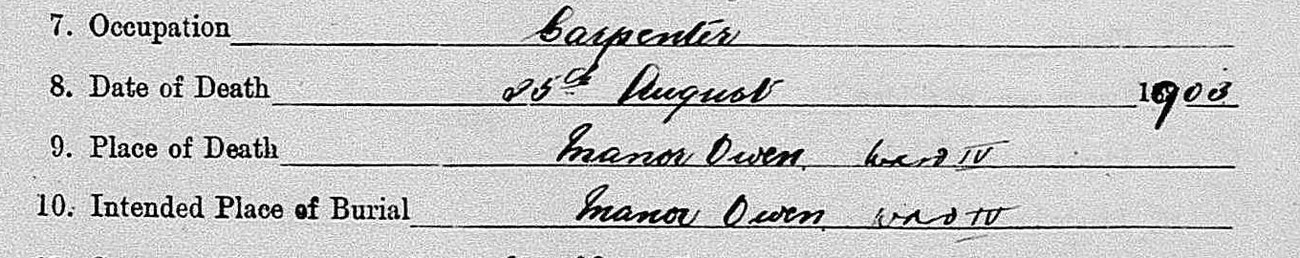 7. Occupation Carpenter
8. Date of Death 25th August 1903
9. Place of Death Manor Owen Ward IV
10. Intended Place of Burial Manor Owen Ward IV